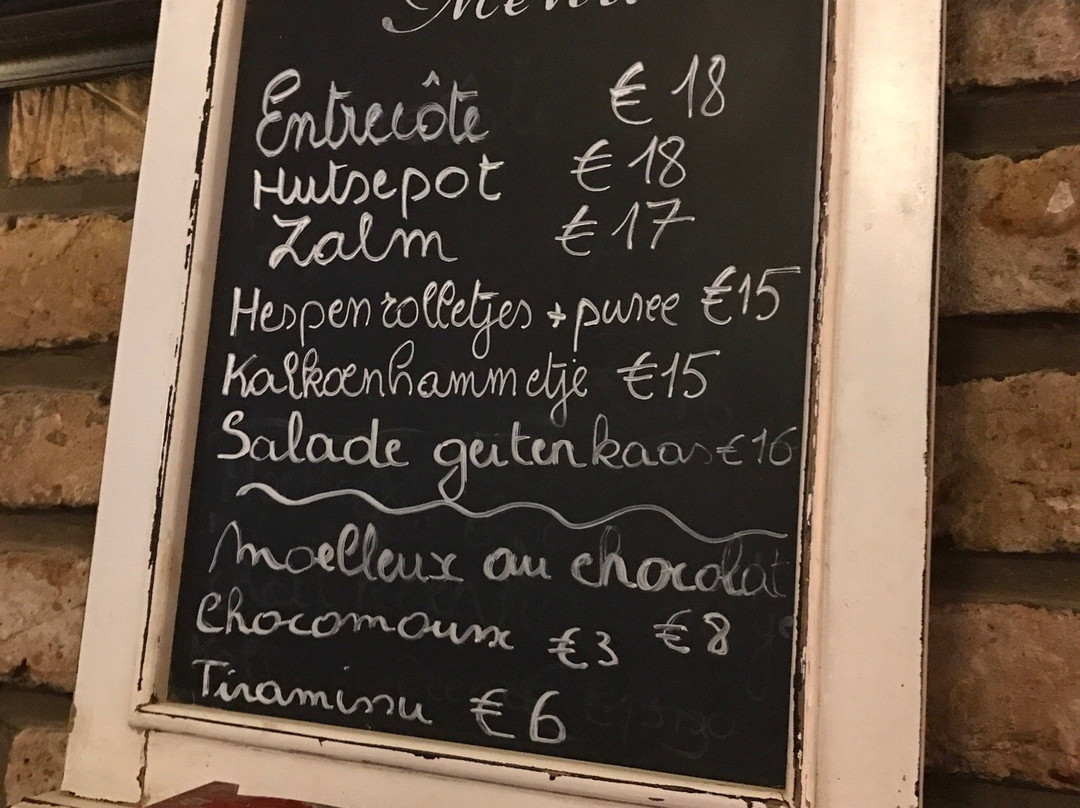 Menu
Entrecôte € 18
Hutsepot € 18
Zalm € 17
Hespenrolletjes + puree €15
Kalkoenhammetje €15
Salade geitenkaas €16
Moelleux au chocolat
€ 8
Chocomousse €3
Tiramissu € 6